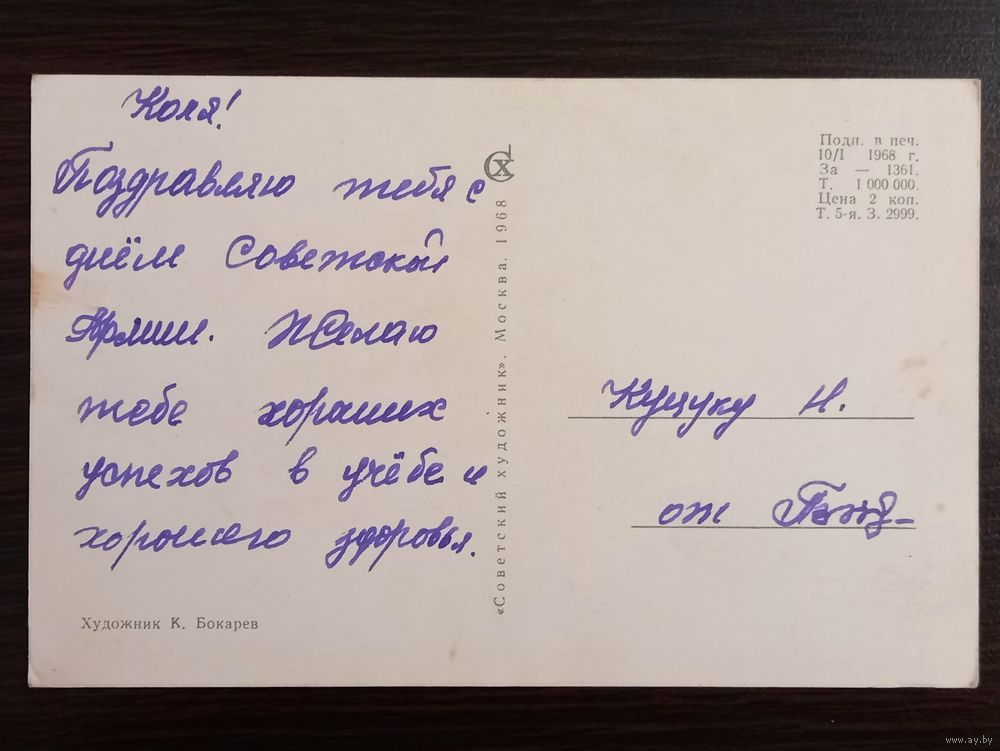 Коля!
Поздравляю тебя с
днём Советской
Армии. Желаю
тебе хороших
успехов в учёбе и
хорошего здоровья.
Художник К. Бокарев
«Советский художник». Москва. 1968
СХ
Подп. в печ.
10/I 1968 г.
За — 1361.
Т. 1 000 000.
Цена 2 коп.
Т. 5-я. З. 2999.
Куцуку Н.
от
www.ay.by